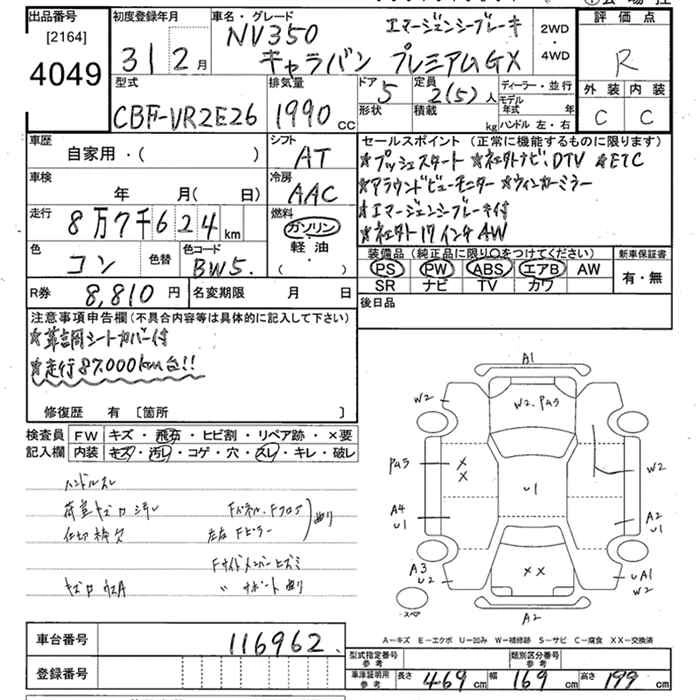 出品番号
[2164]
4049
初度登録年月
31 2月
車名・グレード
NV350 エマージェンシーブレーキ
キャラバン プレミアムGX
2WD
・
4WD
評価点
R
外装 内装
C C
型式
CBF-VR2E26
排気量
1990 cc
ドア
5
形状
定員
2(5)人
積載
kg
ディーラー・並行
モデル年式 年
ハンドル 左・右
車歴
自家用・( )
シフト
AT
車検
年 月( 日)
冷房
AAC
走行
8万7千624km
燃料
ガソリン
軽油
( ・ )
色
コン
色替
色コード
BW5.
R券 8,810円
名変期限 月 日
セールスポイント (正常に機能するものに限ります)
★プッシュスタート ★ネェクトナビ、DTV ★ETC
★アラウンドビューモニター ★ウィンカーミラー
★エマージェンシーブレーキ付
★ネェクト17インチAW
装備品 (純正品に限り○をつけてください)
PS PW ABS エアB AW
SR ナビ TV カワ
新車保証書
有・無
後日品
注意事項申告欄(不具合内容等は具体的に記入して下さい)
★革調シートカバー付
★走行87,000km台!!
修復歴 有 [箇所 ]
検査員 記入欄
FW キズ・飛石・ヒビ割・リペア跡・×要
内装 キズ・汚レ・コゲ・穴・スレ・キレ・破レ
ハンドルスレ
荷室キズ凹汚レ
仕切棒欠
Fパネル、Fフロア
左右Fピラー
曲り
Fサイドメンバーヒズミ
〃 サポート曲り
キズ凹 ウスA
A1
W2
W2.Pガラ
Pガラ
××
U1
W2
A4
U1
A2
U1
A3
U2
××
UA1
W2
スペ
A2
A-キズ E-エクボ U-凹み W-補修跡 S-サビ C-腐食 XX-交換済
車台番号 116962.
登録番号
型式指定番号 参考
類別区分番号 参考
車庫証明用 参考
長さ 469cm 幅 169cm 高さ 199cm